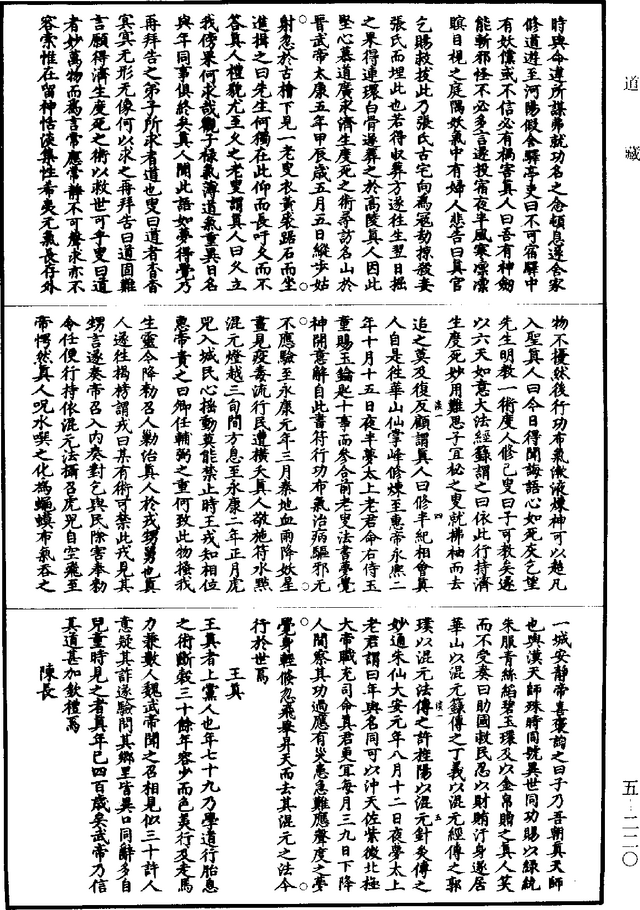 道藏
時與命違所謀弗就功名之念頓息遂舍家
修道遊至河陽假舍驛亭吏曰不可宿驛中
有妖儻或不信必有禍害真人曰吾有神劍
能斬邪怪不必多言遂投宿夜半風寒凜凜
瞑目視之庭隅妖氣中有婦人悲告曰真官
乞賜救拔此乃張氏古宅向為寇劫掠殺妾
張氏而埋此也若得收葬方遂往生翌日掘
之果得連環白骨遂葬之於高陵真人因此
堅心慕道廣求濟生度死之術尋訪名山於
晉武帝太康五年甲辰歲五月五日縱步姑
射忽於古檜下見一老叟衣黃裘踞石而坐
進揖之曰先生何獨在此仰而長吁久而不
答真人禮貌尤至久之老叟謂真人曰久立
我傍果何求哉觀子祿氣薄道氣重異日名
與年同事俱終矣真人聞此語如夢得覺乃
再拜告之弟子所求者道也叟曰道者杳杳
冥冥无形无像何以求之再拜告曰道固難
言願得濟生度死之術以救世可乎叟曰道
者妙萬物而為言常應常靜不可聲求亦不
容索惟在留神恬淡集性希夷元氣長存外
物不擾然後行功布氣漱液煉神可以超凡
入聖真人曰今日得聞誨語心如死灰乞望
先生明教一術度人修己叟曰子可教矣遂
以六天如意大法經籙謂之曰依此行持濟
生度死妙用難思子宜秘之叟就拂袖而去
追之莫及復反顧謂真人曰修半紀相會真
人自是往華山仙掌峰修煉至惠帝永熙二
年十月十五日夜半夢太上老君命右侍玉
童賜玉鑰匙十事而參合前老叟法書夢覺
神開意解自此書符行功布氣治病驅邪无
不應驗至永康元年三月秦地血雨降妖星
晝見疫毒流行民遭橫夭真人敬施符水點
混元燈越三旬間方息至永康二年正月虎
咒入城民心搖動莫能禁止時王戎知相位
惠帝責之曰卿任輔弼之重何致此物擾我
生靈今降勑召人勦治真人於戎甥舅也真
人遂往揭榜謂戎曰某有術可禁此戎見其
甥言遂奏帝召入內奏對乞與民除害奉勑
令任便行持依混元法攝召虎兕自空飛至
帝愕然真人呪水噀之化為蠅蟆布氣吞之
一城安靜帝喜褒詢之曰子乃吾朝真天師
也與漢天師殊時同號異世同功賜以綠統
朱服青絲縚碧玉環及以金帛贈之真人笑
而不受奏曰助國救民忍以財賄汙身遂居
華山以混元籙傳之丁義以混元經傳之郭
璞以混元法傳之許旌陽以混元針灸傳之
妙通朱仙大安元年八月十二日夜夢太上
老君謂曰年與名同可以沖天佐紫後北極
大帝職充司命真君更宜每月三九日下降
人間察其功過應有災患急難應聲度之夢
覺身輕倏忽飛舉昇天而去其混元之法今
行於世焉
王真
王真者上黨人也年七十九乃學道行胎息
之術斷穀三十餘年容少而色美行及走馬
力兼數人魏武帝聞之召相見似三十許人
意疑其詐遂驗問其鄉里皆異口同辭多自
兒童時見之者真年已四百歲矣武帝乃信
其道甚加欽禮焉
陳長
五—二二〇